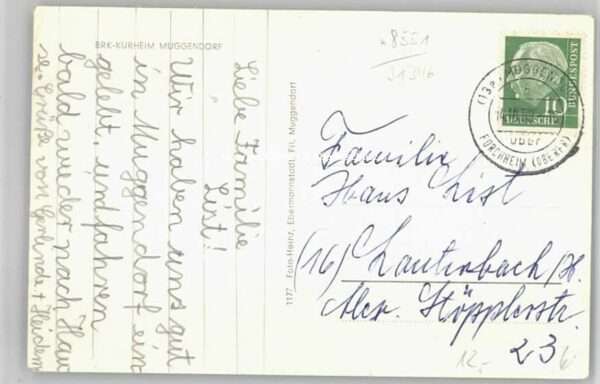 BRK-KURHEIM MUGGENDORF
Liebe Familie
List!
Wir haben uns gut
in Muggendorf ein
gelebt, und fahren
bald wieder nach Hau
se. Grüße von Gerlinde + Heidem
1177 Foto-Heinz, Ebermannstadt, Fil. Muggendorf
8551
(13a) MUGGEND
über
FORCHHEIM (OBERFR)
10
DEUTSCHE
BUNDESPOST
Familie
Hans List
(16) Lauterbach/H.
Alex. Höpplerstr.
23
12,-